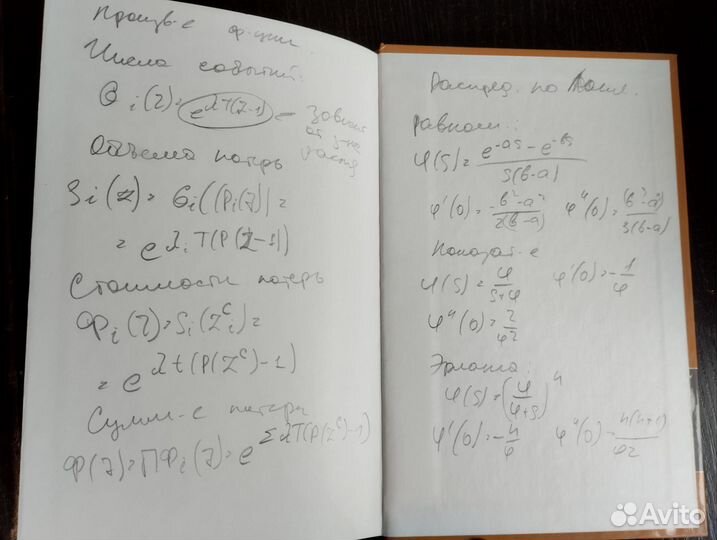 Произв-е ф-ции.
Числа событий:
G i(z) = e^{λT(z-1)} ← Зависит
от з-на
распр
Объема потерь
S i(z) = G i((P i(z)) =
= e^{λ i T(P(z-1))}
Стоимости потерь
Φ i(z) = S i(z^c i) =
= e^{λt(P(z^c)-1)}
Сумм-е потери
Φ(z) = ПΦ i(z) = e^{Σ λT(P(z^c)-1)}
Распред. по
равном.:
φ(s) = \frac{e^{-as} - e^{-bs}}{s(b-a)}
φ'(0) = -\frac{b²-a²}{2(b-a)} φ''(0) = \frac{(b³-a³)}{3(b-a)}
Показат-е
φ(s) = \frac{φ}{s+φ} φ'(0) = -\frac{1}{φ}
φ''(0) = \frac{2}{φ²}
Эрланга:
φ(s) = (\frac{φ}{φ+s})^n
φ'(0) = -\frac{n}{φ} φ''(0) = \frac{n(n+1)}{φ2}
Avito